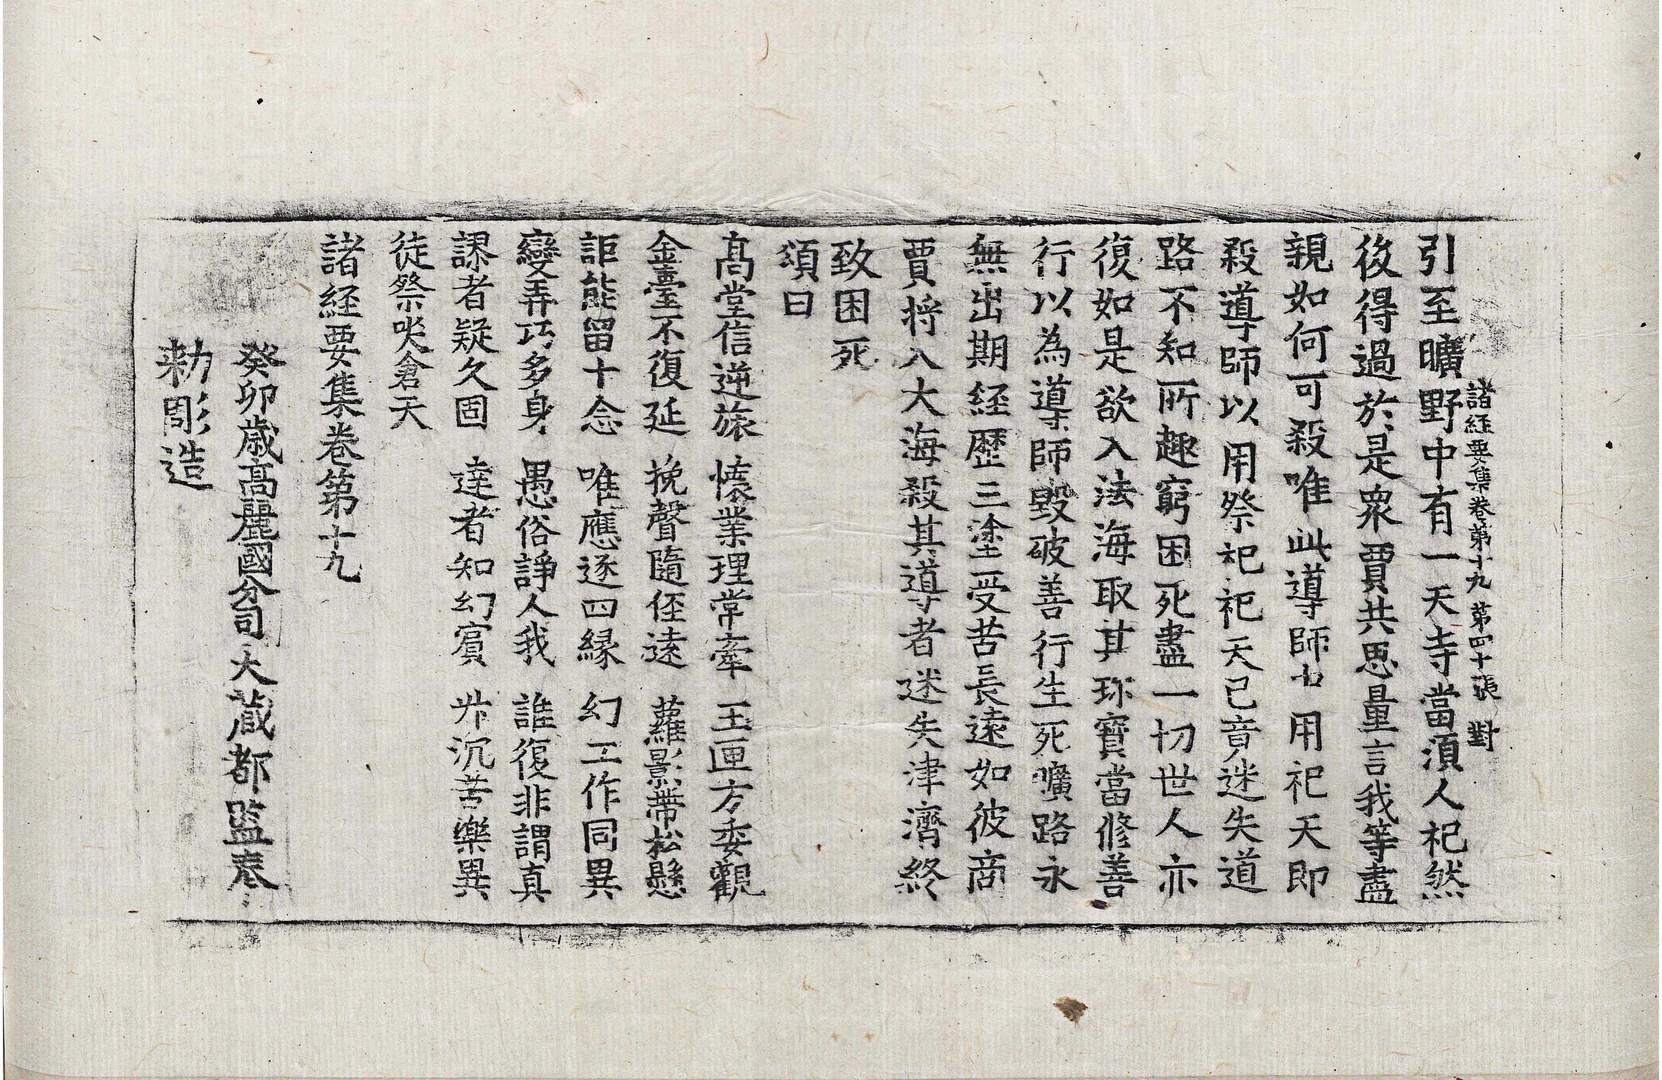 諸経要集卷第十九 第四十張 對
引至曠野中有一天寺當湏人祀然
後得過於是衆賈共思量言我等盡
親如何可殺唯此導師中用祀天即
殺導師以用祭祀祀天已竟迷失道
路不知所趣窮困死盡一切世人亦
復如是欲入法海取其珎寶當修善
行以為導師毀破善行生死曠路永
無出期経歷三塗受苦長遠如彼商
賈將入大海殺其導者迷失津濟終
致困死
頌曰
髙堂信逆旅 懐業理常牽 玉匣方委觀
金臺不復延 挽聲隨侄遠 蘿影帶松懸
詎能留十念 唯應逐四緣 幻工作同異
變弄巧多身 愚俗諍人我 誰復非謂真
謀者疑久固 達者知幻賓 升沉苦樂異
徒祭哭倉天
諸経要集卷第十九
癸卯歲髙麗國分司大藏都監奉
勑彫造